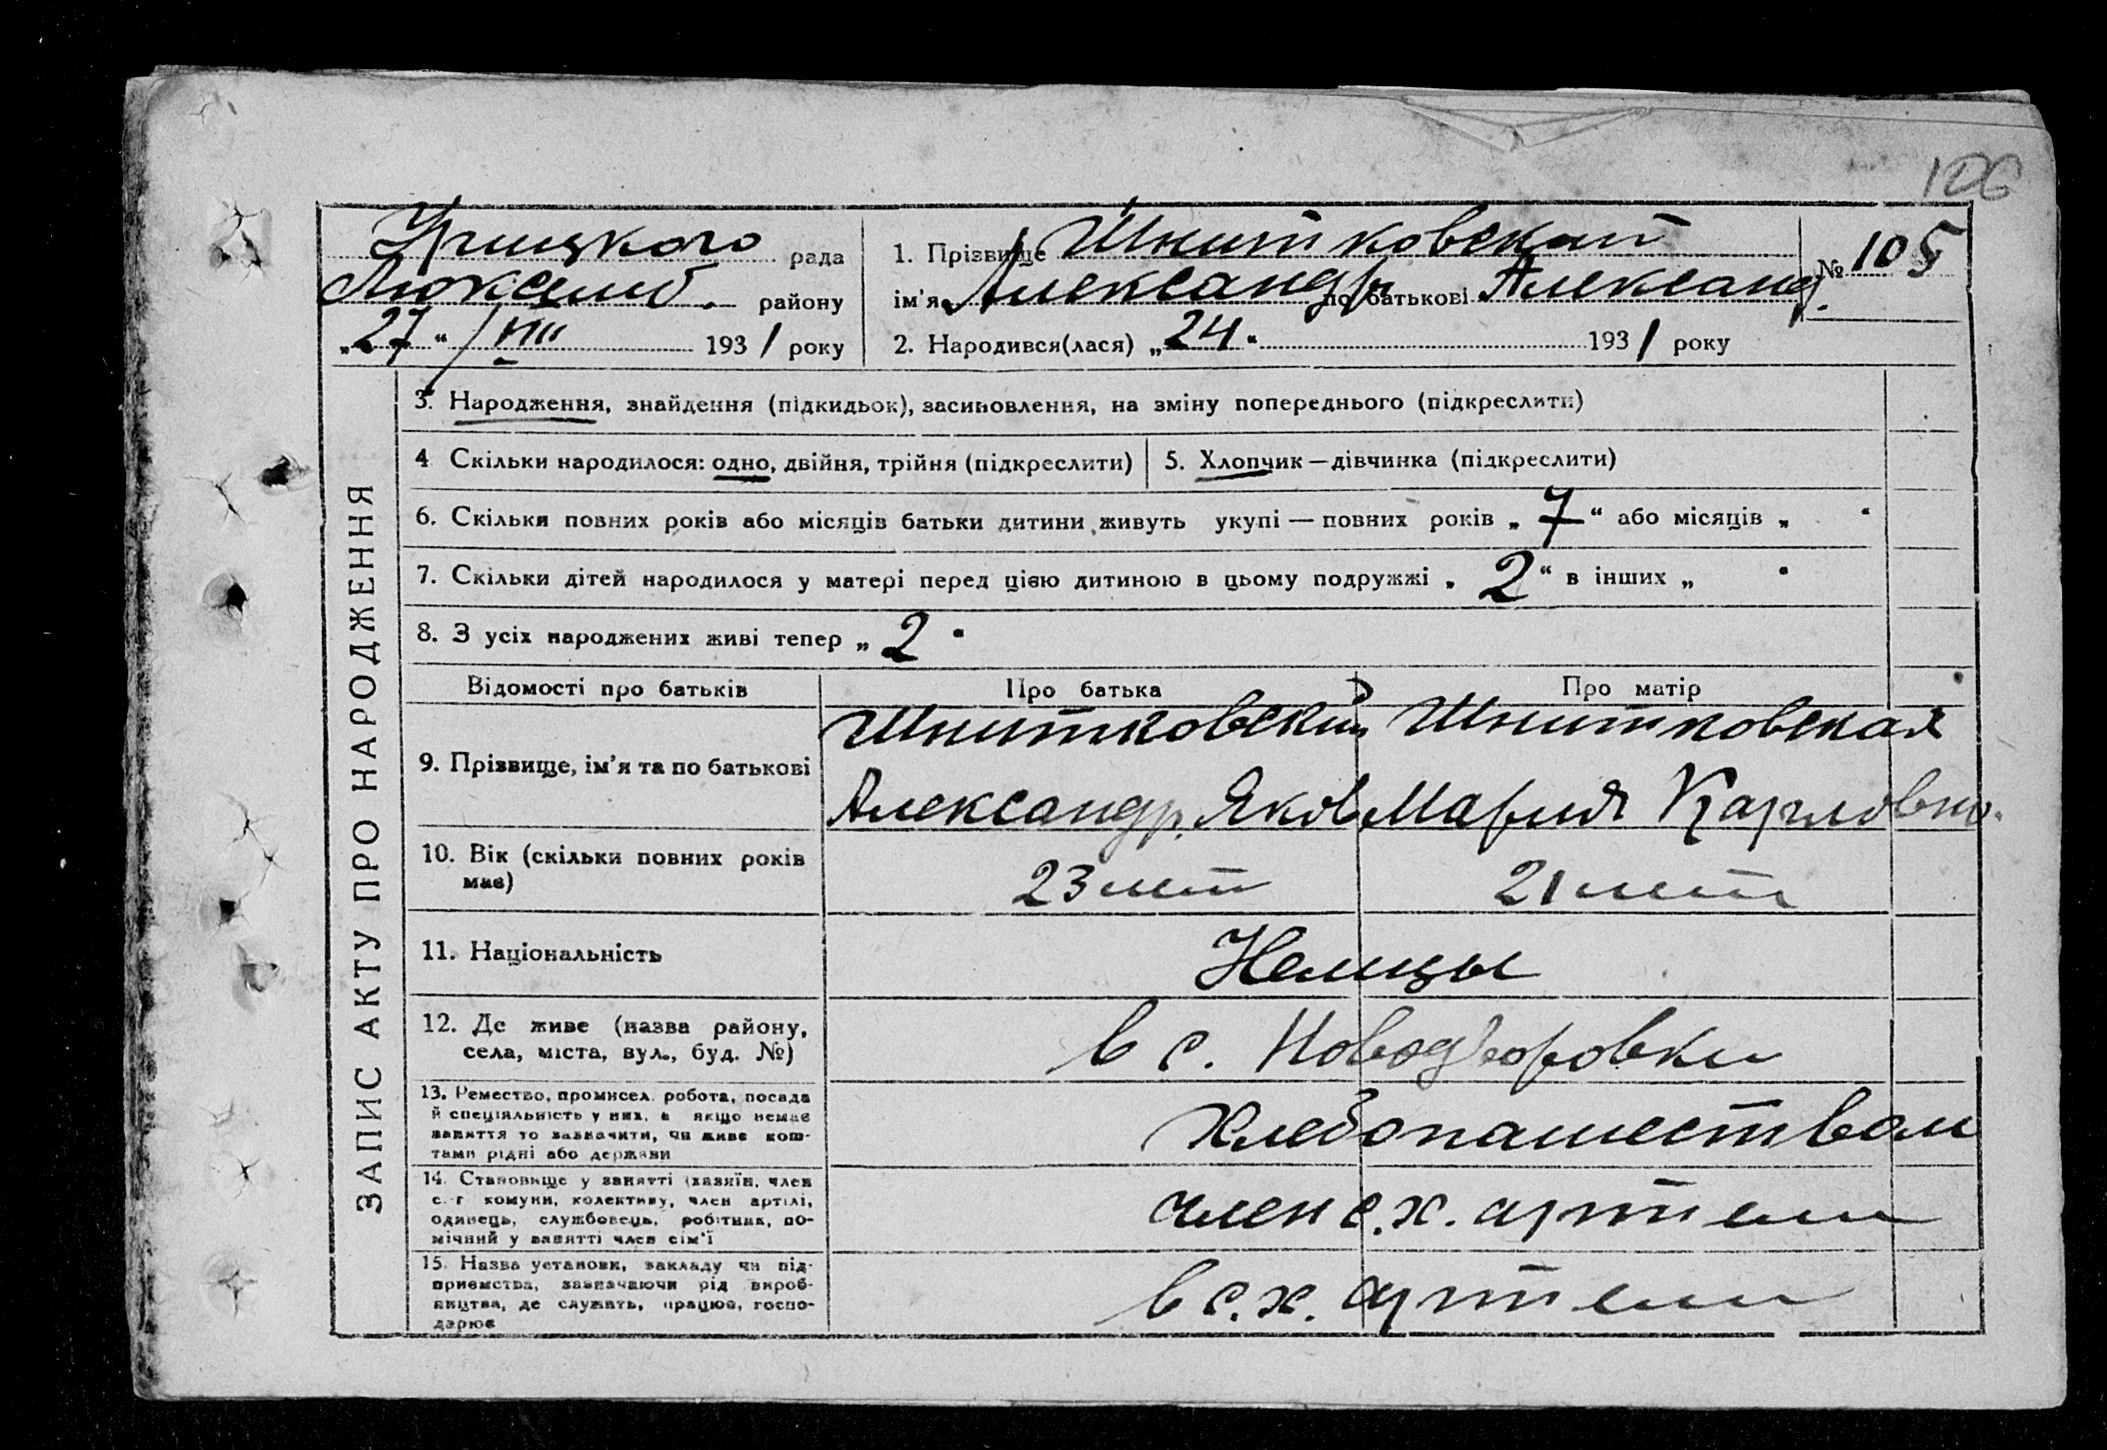 106
Урицкого рада
Люксемб. району
„27“ / VIII 1931 року
1. Прізвище Шнитковский
ім'я Александр по батькові Александ.
№ 105
2. Народився(лася) „24“ 1931 року
ЗАПИС АКТУ ПРО НАРОДЖЕННЯ
3. Народження, знайдення (підкидьок), засиновлення, на зміну попереднього (підкреслити)
4 Скільки народилося: одно, двійня, трійня (підкреслити)
5. Хлопчик—дівчинка (підкреслити)
6. Скільки повних років або місяців батьки дитини живуть укупі — повних років „7“ або місяців „ “
7. Скільки дітей народилося у матері перед цією дитиною в цьому подружжі „2“ в інших „ “
8. З усіх народжених живі тепер „2“
Відомості про батьків Про батька Про матір
9. Прізвище, ім'я та по батькові
Шнитковский Шнитковская
Александр. Яков Мария Карловна.
10. Вік (скільки повних років
має)
23 лет 21 лет
11. Національність
Немцы
12. Де живе (назва району,
села, міста, вул., буд. №)
в с. Новодворовки
13. Ремество, промисел. робота, посада
й спеціяльність у них, а якщо немає
заняття то зазначити, чи живе кош-
тами рідні або держави
Хлебопашеством
14. Становище у занятті (хазяїн, член
с.-г комуни, колективу, член артілі,
одинець, службовець, робітник, по-
мічний у занятті член сім'ї
член с.х. артели
15. Назва установи, закладу чи під-
приємства, зазначаючи рід вироб-
ництва, де служить, працює, госпо-
дарює
в с.х. артели